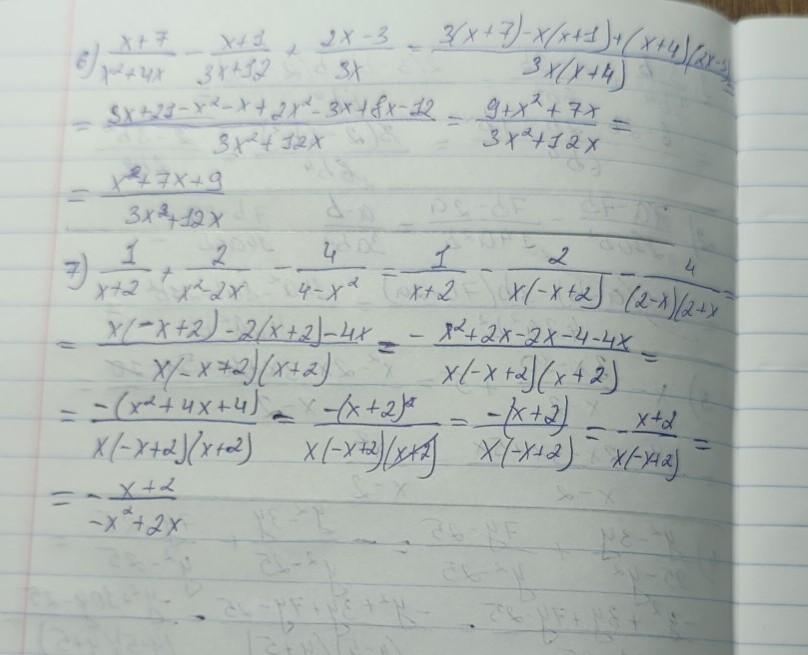 6) (x+7)/(x²+4x) - (x+1)/(3x+12) + (2x-3)/(3x) = (3(x+7)-x(x+1)+(x+4)(2x-3))/(3x(x+4)) =
= (3x+21-x²-x+2x²-3x+8x-12)/(3x²+12x) = (9+x²+7x)/(3x²+12x) =
= (x²+7x+9)/(3x²+12x)
7) 1/(x+2) + 2/(x²-2x) - 4/(4-x²) = 1/(x+2) - 2/(x(-x+2)) - 4/((2-x)(2+x =
= (x(-x+2)-2(x+2)-4x)/(x(-x+2)(x+2)) = (-x²+2x-2x-4-4x)/(x(-x+2)(x+2)) =
= (-(x²+4x+4))/(x(-x+2)(x+2)) = (-(x+2)²)/(x(-x+2)(x+2)) = (-(x+2))/(x(-x+2)) = -(x+2)/(x(-x+2)) =
= -(x+2)/(-x²+2x)